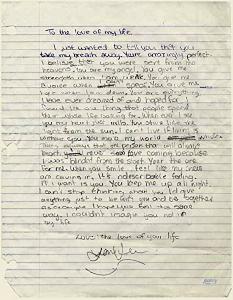 To the love of my life
I just wanted to tell you that you
take my breath away. You're amazingly perfect.
I believe that you were sent from the
heavens. You are my angel. You give me
strength when I am weak. You give me
a voice when I can't speak. You give me
hope when I'm down. You are everything
I have ever dreamed of and hoped for. I
found the one thing that people spend
their whole life looking for. When ever I see
you my heart just melts. You shine like the
light from the sun. I can't live it living is
without you. You are my world
always that the person that will always
love coming because
I was blinded from the start. Your the one
for me. When you smile I feel like my
are caving in. It's indescribable feeling.
All I want is you. You keep me up all night.
I can't stop thinking about you. I'd give
anything just to be with you and be together
as a couple. I hope you feel the same
way. I couldn't imagine you not in
my life
Love: the love of your life